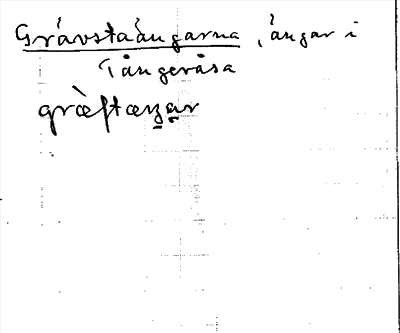 Grávstaángarna, ángar i
Tångeråsa
græ̀ftæŋar